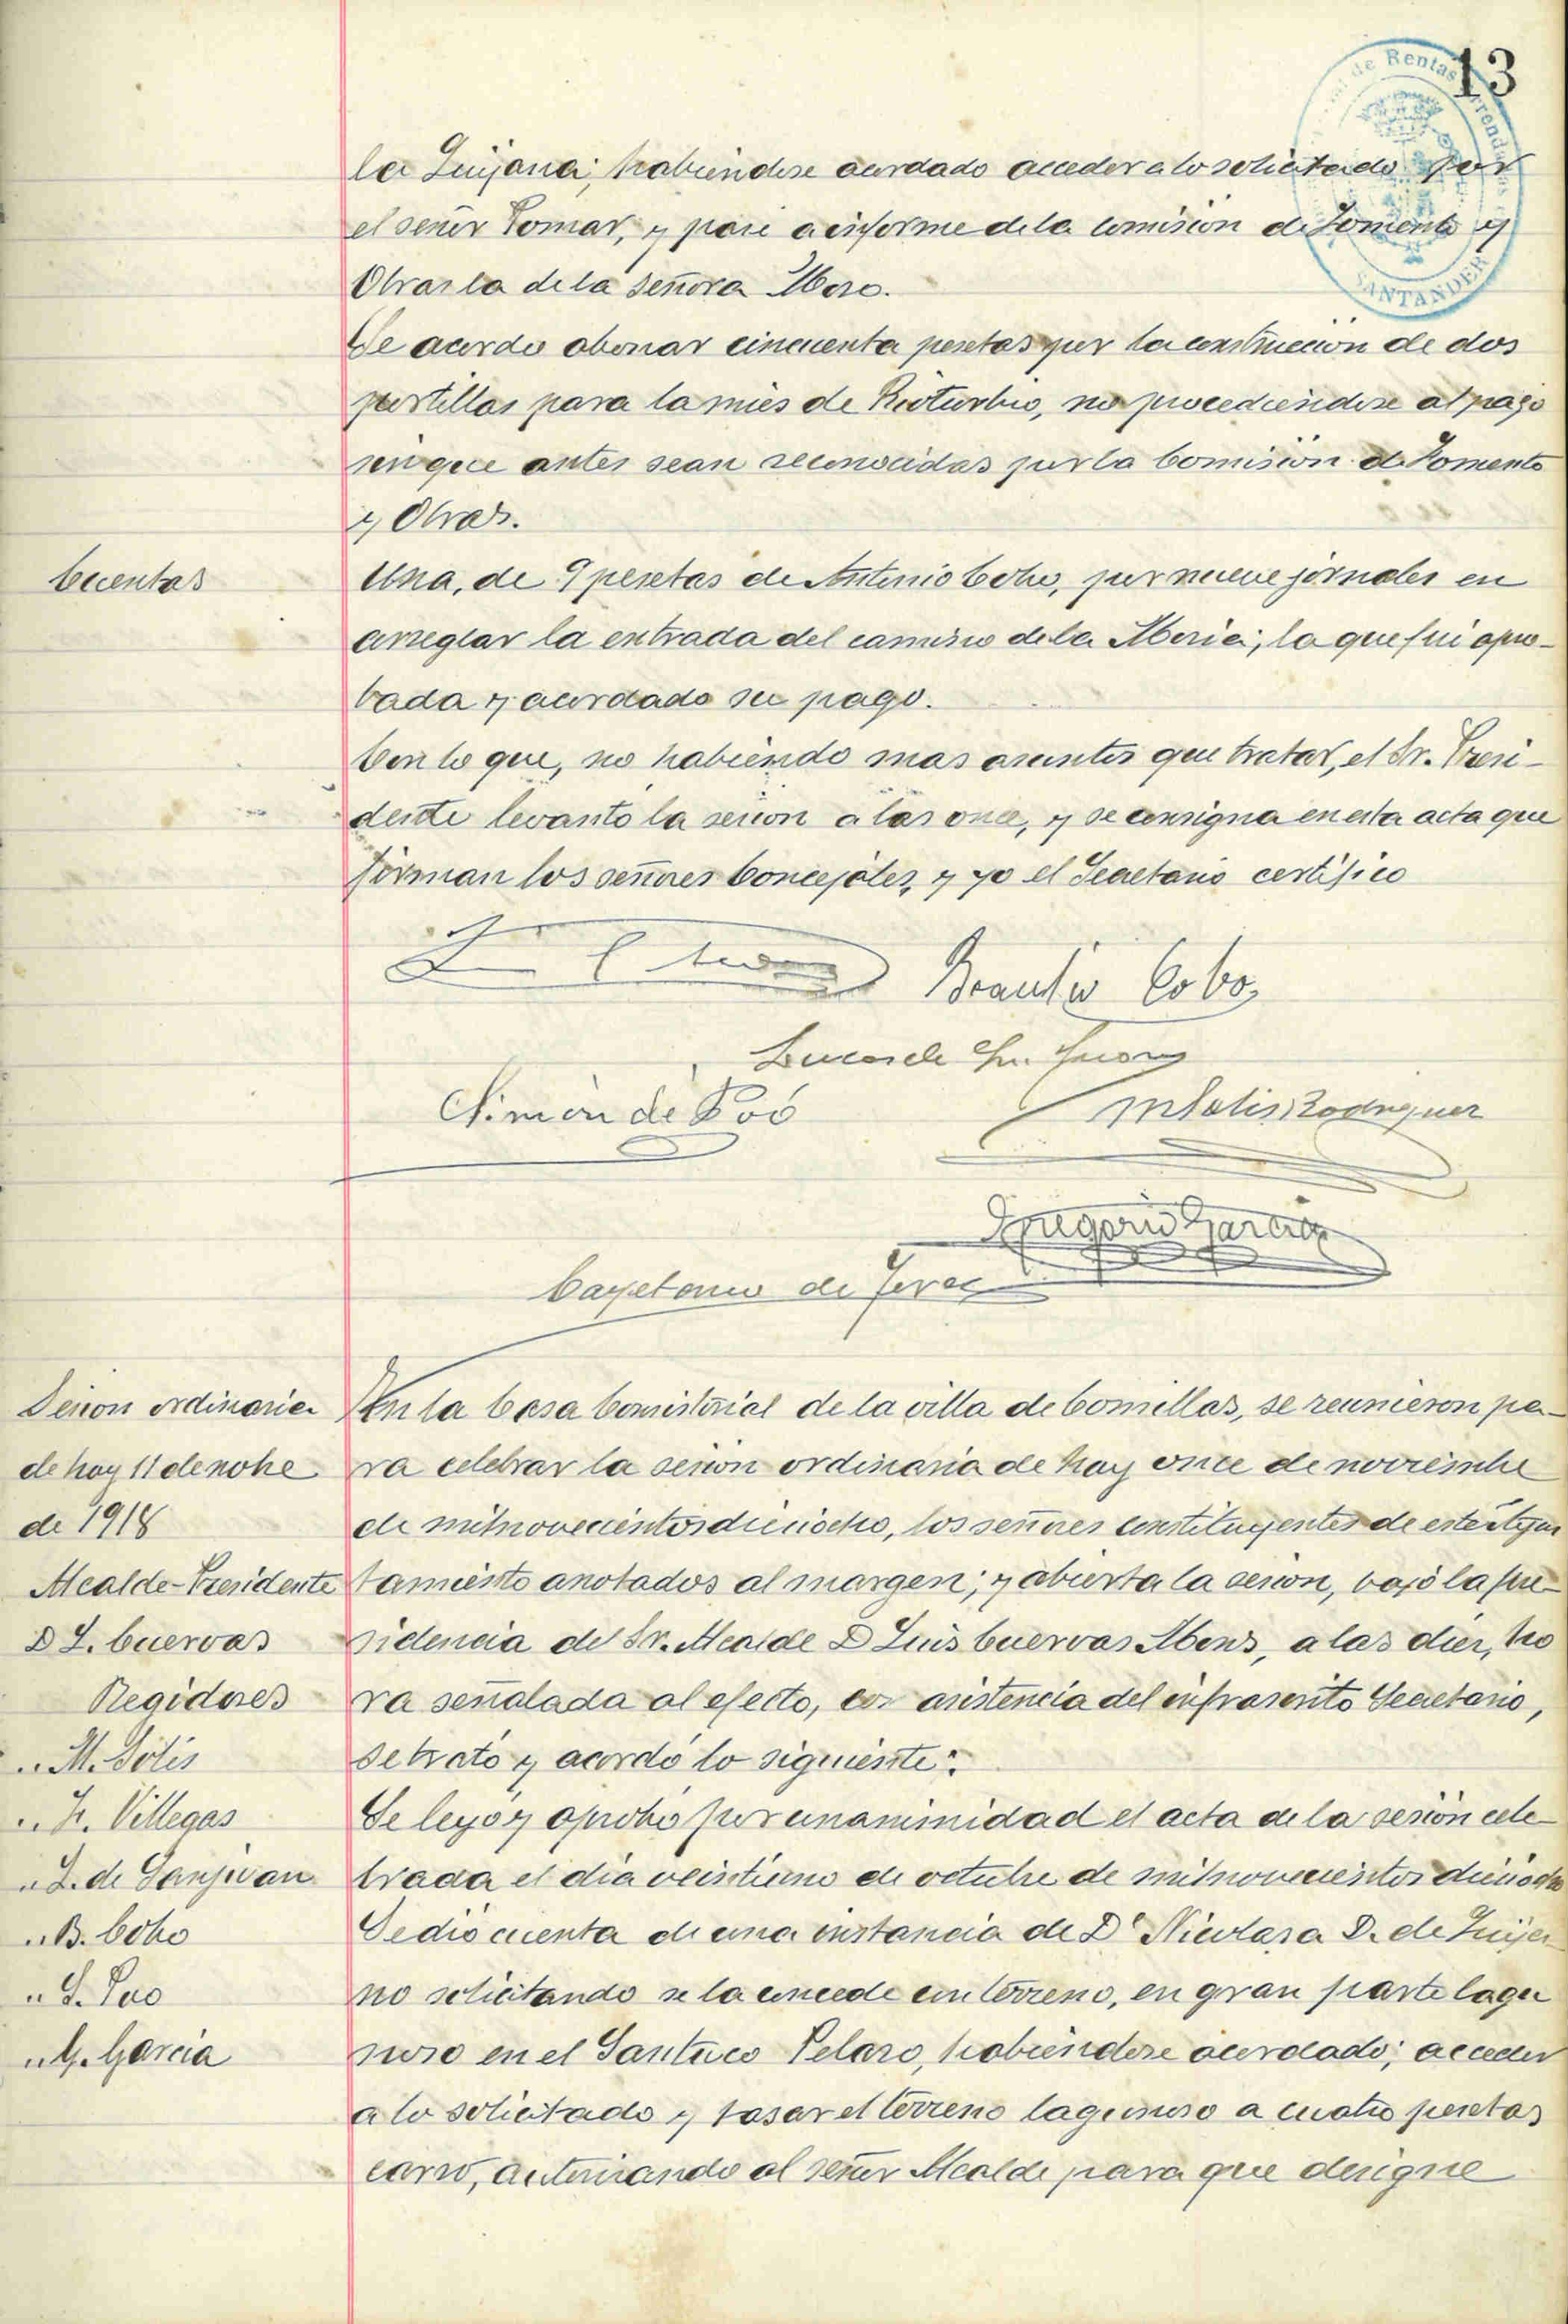 13
de Rentas
SANTANDER
la Quijana; habiendose acordado acceder a lo solicitado por
el señor Pomar, y pase a informe de la comision de Fomento y
Obras la de la señora Moro.
Se acordo abonar cincuenta pesetas por la construccion de dos
portillas para la mies de Rioturbio, no procediendose al pago
sin que antes sean reconocidas por la Comision de Fomento
y Obras.
Cuentas
Una, de 9 pesetas de Antonio Cobo, por nueve jornales en
arreglar la entrada del camino de la Moria; la que fué apro-
bada y acordado su pago.
Con lo que, no habiendo mas asuntos que tratar, el Sr. Presi-
dente levantó la sesion a las once, y se consigna en esta acta que
firman los señores Concejales, y yo el Secretario certifico
Braulio Cobo
Lucas de San Juan
Simón de Poó
M Solis Rodriguez
Gregorio Garcia
Cayetano de Perez
Sesion ordinaria
de hoy 11 de nobe
de 1918
Alcalde-Presidente
D L. Cuervas
Regidores
" M. Sólis
" F. Villegas
" L. de Sanjuan
" B. Cobo
" S. Poo
" G. Garcia
En la Casa Comistorial de la villa de Comillas, se reunieron pa-
ra celebrar la sesion ordinaria de hoy once de noviembre
de milnovecientosdieciocho, los señores constituyentes de este Ayun
tamiento anotados al margen; y abierta la sesion, bajo la pre-
sidencia del Sr. Alcalde D Luis Cuervas Mons, a las diez, ho
ra señalada al efecto, con asistencia del infrascrito Secretario,
se trató y acordó lo siguiente:
Se leyó y aprobó por unanimidad el acta de la sesión cele-
brada el dia veintiuno de octubre de milnovecientos dieciocho
Se dió cuenta de una instancia de Dª Nicolasa D. de Quija
no solicitando se la concede un terreno, en gran parte lagu
noso en el Santuco Pelaro, habiendose acordado; acceder
a lo solicitado y tasar el terreno lagunoso a cuatro pesetas
carro, autorizando al señor Alcalde para que designe